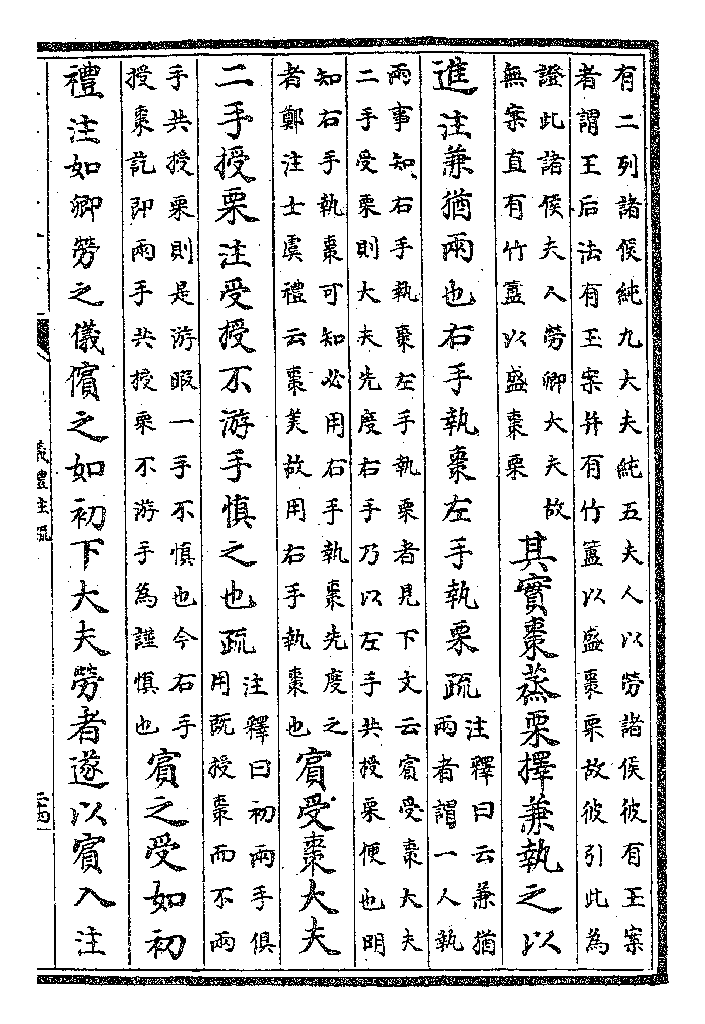 有二列諸侯純九大夫純五夫人以勞諸侯彼有玉案
者謂王后法有玉案并有竹簋以盛棗栗故彼引此為
證此諸侯夫人勞卿大夫故
無案直有竹簋以盛棗栗
其實棗蒸栗擇兼執之以
進注兼猶兩也右手執棗左手執栗疏
注釋曰云兼猶
兩者謂一人執
兩事知右手執棗左手執栗者見下文云賓受棗大夫
二手受栗則大夫先度右手乃以左手共授栗便也明
知右手執棗可知必用右手執棗先度之
者鄭注士虞禮云棗美故用右手執棗也
賓受棗大夫
二手授栗注受授不游手慎之也疏
注釋曰初兩手俱
用既授棗而不兩
手共授栗則是游暇一手不慎也今右手
授棗訖即兩手共授栗不游手為謹慎也
賓之受如初
禮注如卿勞之儀儐之如初下大夫勞者遂以賓入注
儀禮注疏